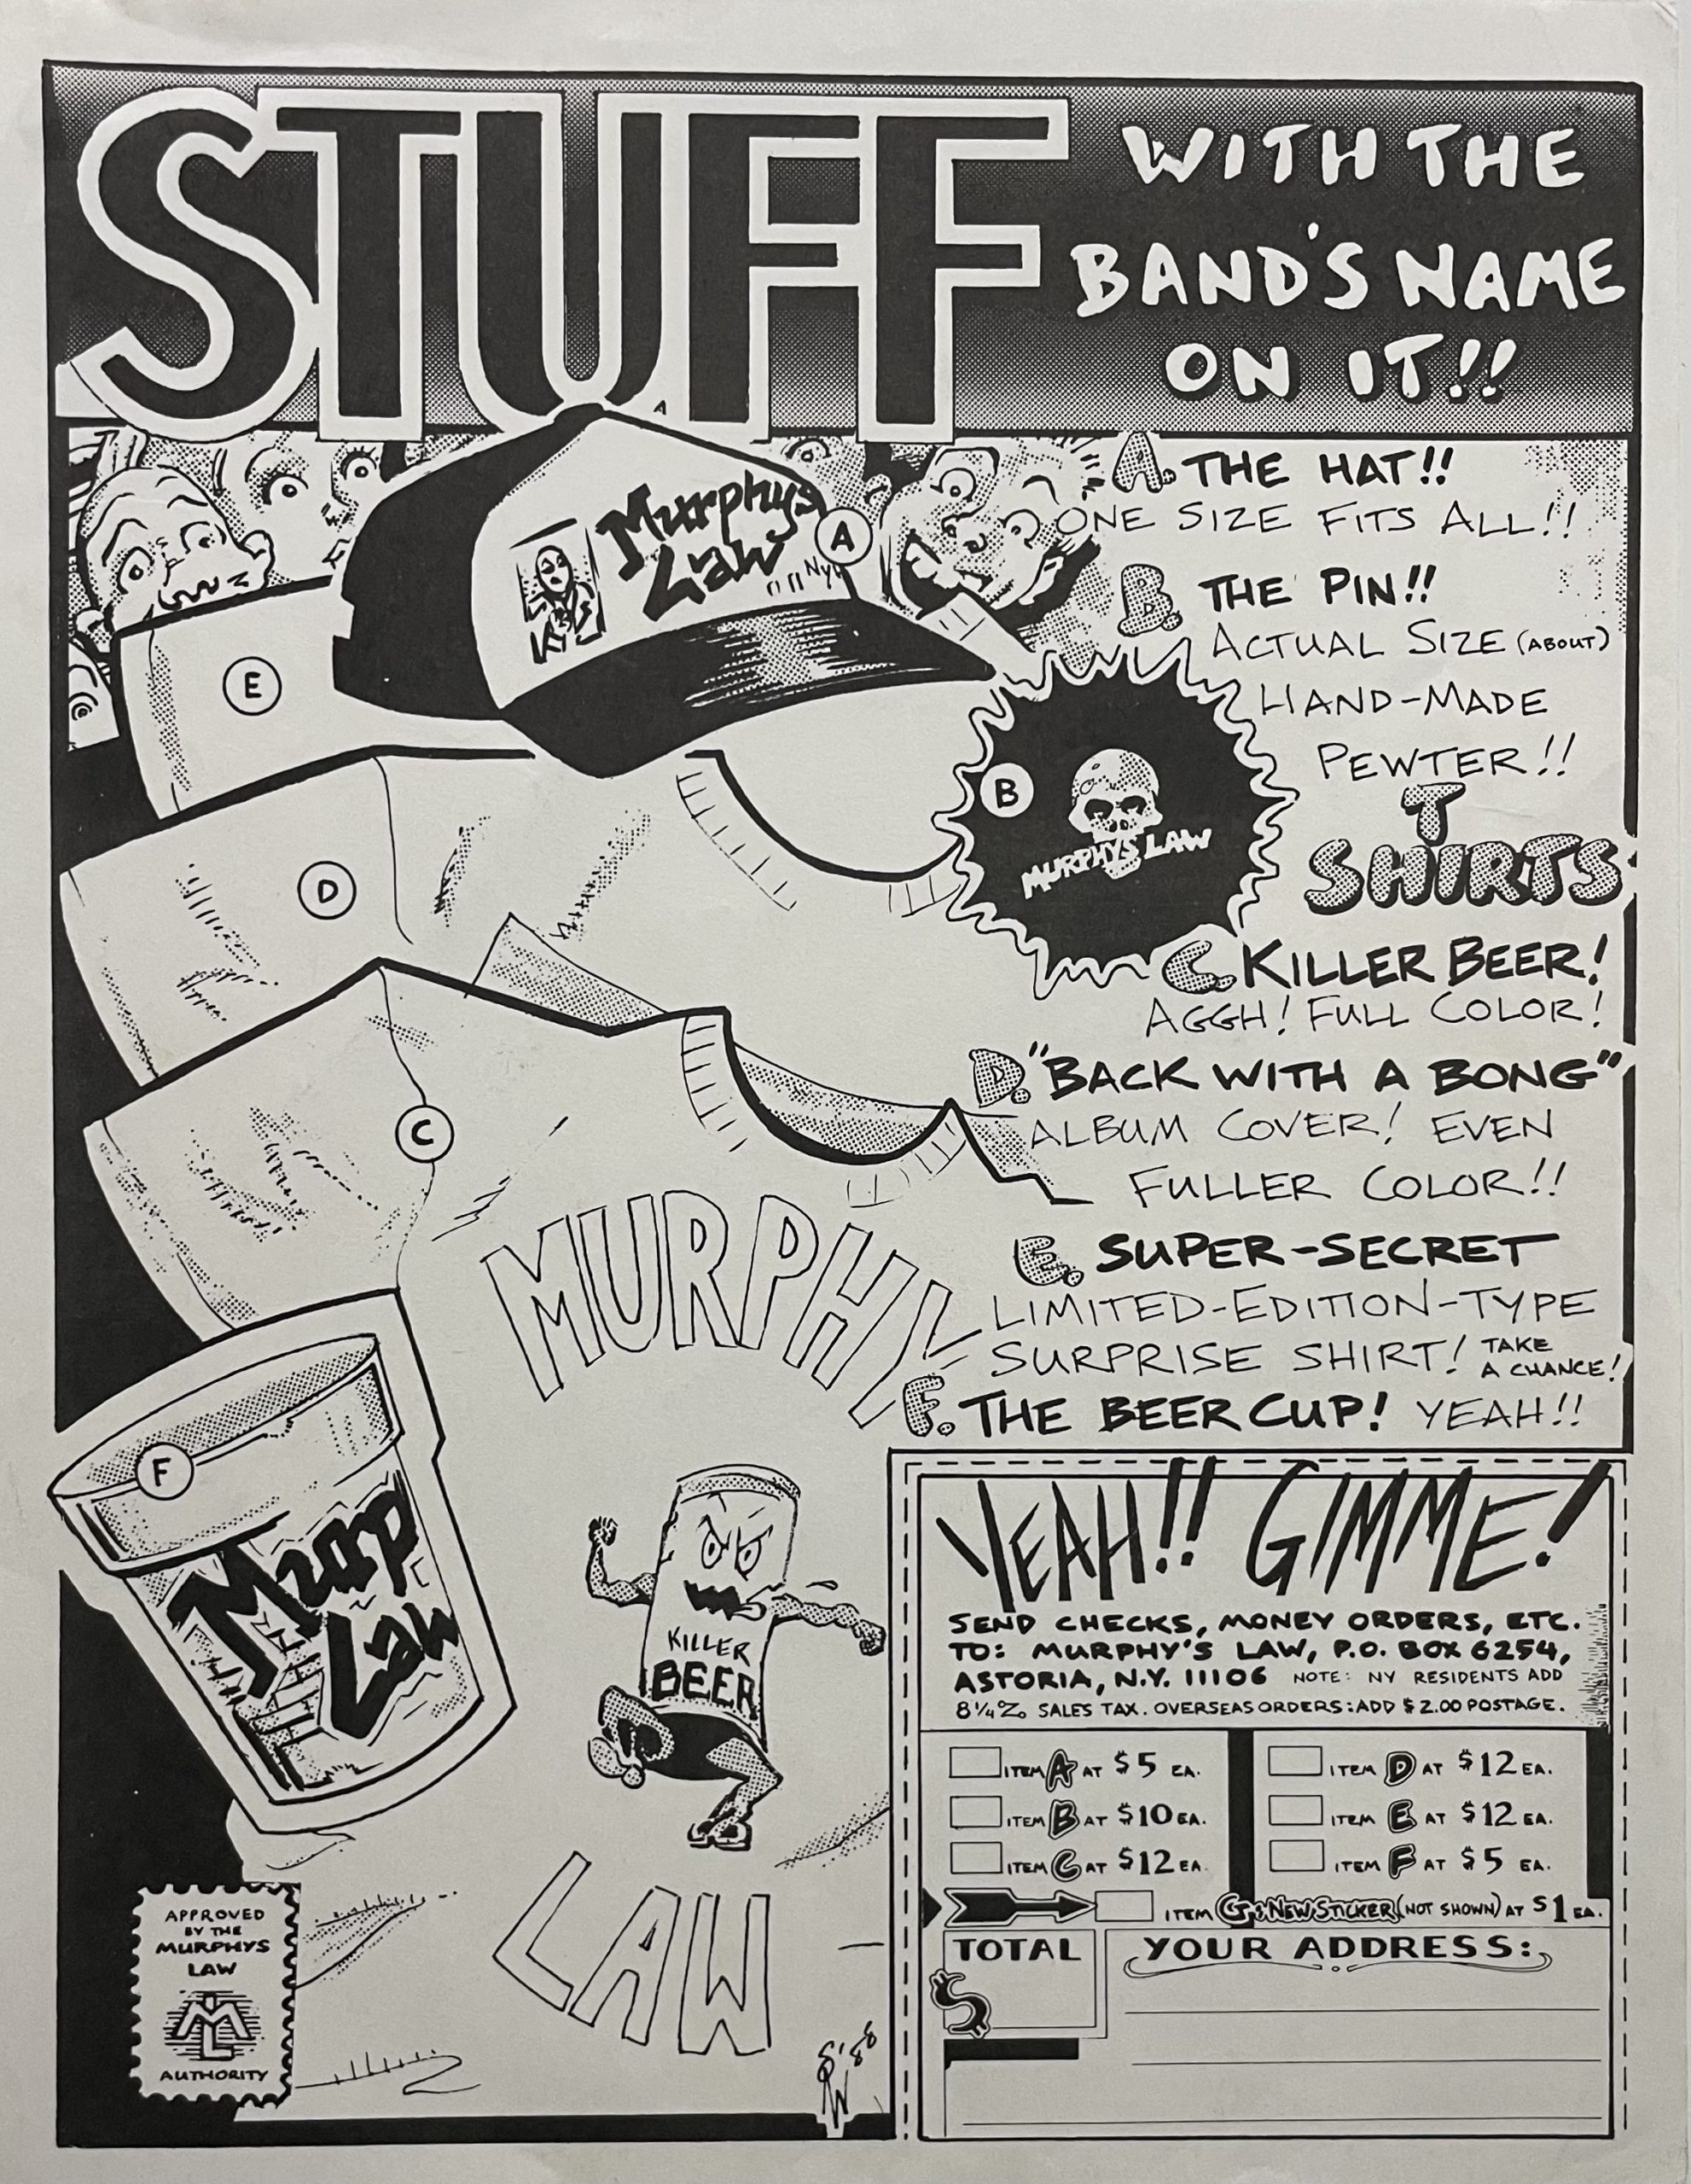 STUFF
WITH THE
BAND'S NAME
ON IT!!
Murphys
Law
NY
A
A. THE HAT!!
ONE SIZE FITS ALL!!
B. THE PIN!!
ACTUAL SIZE (ABOUT)
HAND-MADE
PEWTER!!
E
B
MURPHYS LAW
D
T
SHIRTS
C. KILLER BEER!
AGGH! FULL COLOR!
D. "BACK WITH A BONG"
ALBUM COVER! EVEN
FULLER COLOR!!
C
E. SUPER-SECRET
LIMITED-EDITION-TYPE
SURPRISE SHIRT! TAKE
A CHANCE!
F. THE BEER CUP! YEAH!!
MURPHY
F
Murp
Law
KILLER
BEER
LAW
YEAH!! GIMME!
SEND CHECKS, MONEY ORDERS, ETC.
TO: MURPHY'S LAW, P.O. BOX 6254,
ASTORIA, N.Y. 11106 NOTE: NY RESIDENTS ADD
8¼% SALES TAX. OVERSEAS ORDERS: ADD $2.00 POSTAGE.
ITEM A AT $5 EA.
ITEM B AT $10 EA.
ITEM C AT $12 EA.
ITEM D AT $12 EA.
ITEM E AT $12 EA.
ITEM F AT $5 EA.
ITEM G: NEW STICKER (NOT SHOWN) AT $1 EA.
TOTAL
$
YOUR ADDRESS:
APPROVED
BY THE
MURPHYS
LAW
ML
AUTHORITY
SW '88